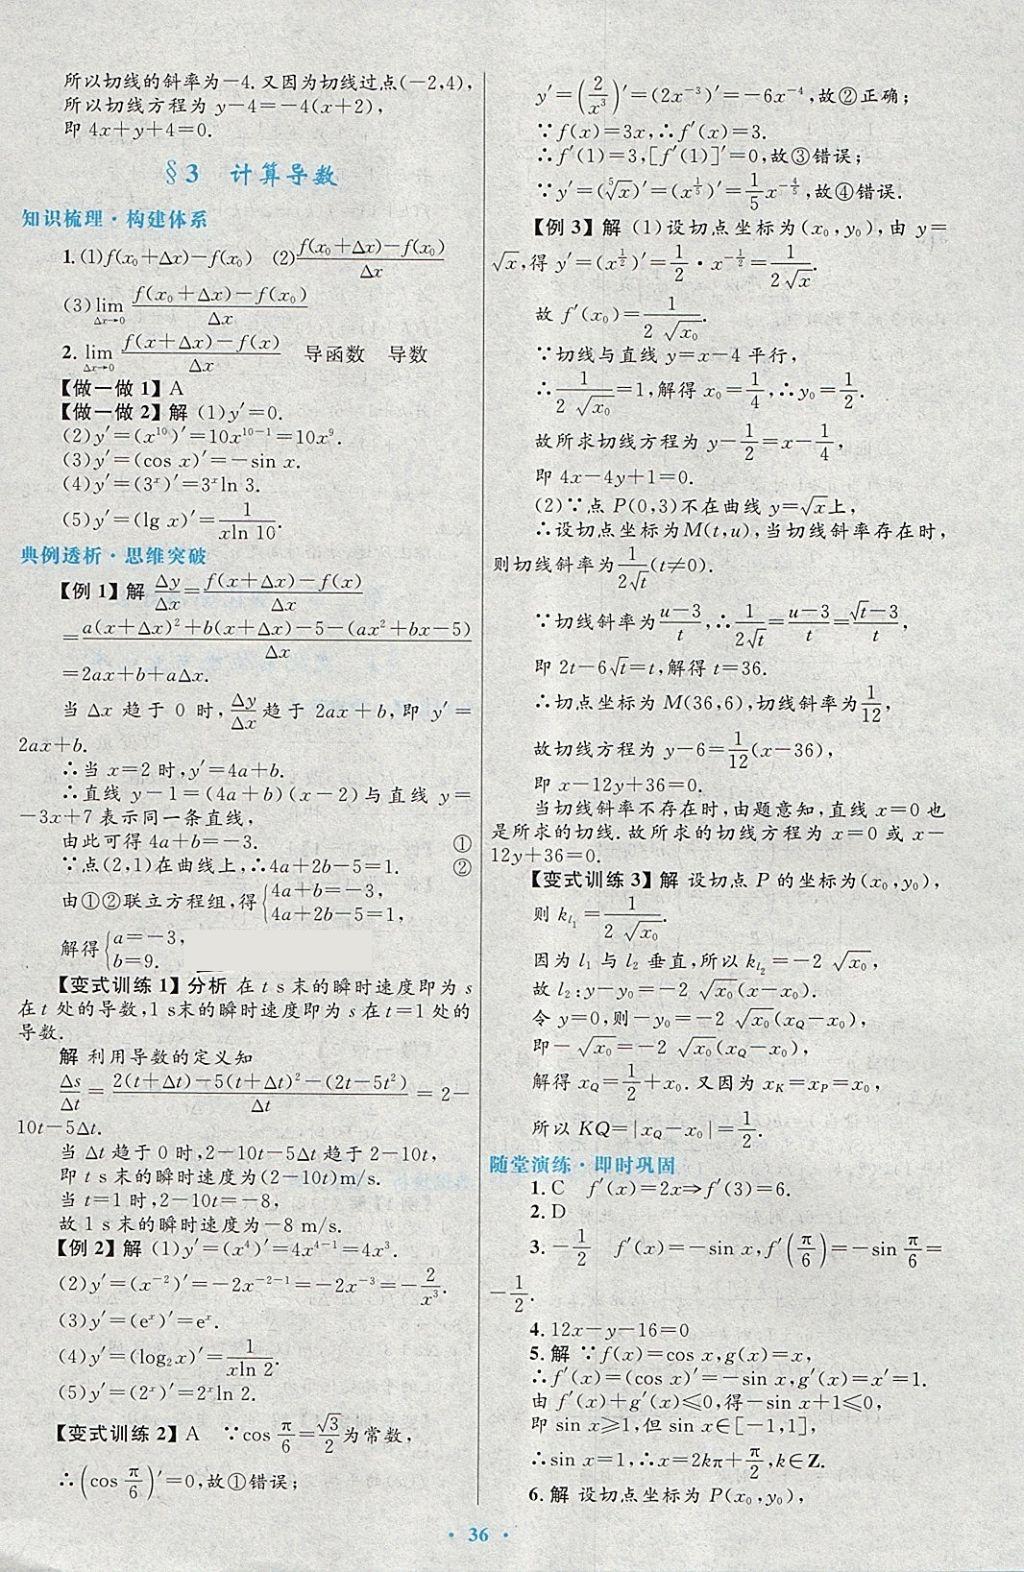 所以切线的斜率为−4.又因为切线过点(−2,4),
所以切线方程为 y−4=−4(x+2),
即 4x+y+4=0.
§3 计算导数
知识梳理·构建体系
1.(1)f(x₀+Δx)−f(x₀) (2)\frac{f(x₀+Δx)−f(x₀)}{Δx}
(3)\lim_{Δx→0}\frac{f(x₀+Δx)−f(x₀)}{Δx}
2.\lim_{Δx→0}\frac{f(x+Δx)−f(x)}{Δx} 导函数 导数
【做一做1】A
【做一做2】解 (1)y′=0.
(2)y′=(x¹⁰)′=10x¹⁰⁻¹=10x⁹.
(3)y′=(cos x)′=−sin x.
(4)y′=(3ˣ)′=3ˣln 3.
(5)y′=(lg x)′=\frac{1}{xln 10}.
典例透析·思维突破
【例1】解 \frac{Δy}{Δx}=\frac{f(x+Δx)−f(x)}{Δx}
=\frac{a(x+Δx)²+b(x+Δx)−5−(ax²+bx−5)}{Δx}
=2ax+b+aΔx.
当 Δx 趋于 0 时,\frac{Δy}{Δx}趋于 2ax+b,即 y′=
2ax+b.
∴当 x=2 时,y′=4a+b.
∴直线 y−1=(4a+b)(x−2)与直线 y=
−3x+7 表示同一条直线,
由此可得 4a+b=−3. ①
∵点(2,1)在曲线上,∴4a+2b−5=1. ②
由①②联立方程组,得{4a+b=−3,
4a+2b−5=1,
解得{a=−3,
b=9.
【变式训练1】分析 在 t s末的瞬时速度即为 s
在 t 处的导数,1 s末的瞬时速度即为 s 在 t=1 处的
导数.
解 利用导数的定义知
\frac{Δs}{Δt}=\frac{2(t+Δt)−5(t+Δt)²−(2t−5t²)}{Δt}=2−
10t−5Δt.
当 Δt 趋于 0 时,2−10t−5Δt 趋于 2−10t,
即 t s 末的瞬时速度为(2−10t)m/s.
当 t=1 时,2−10t=−8,
故 1 s 末的瞬时速度为−8 m/s.
【例2】解 (1)y′=(x⁴)′=4x⁴⁻¹=4x³.
(2)y′=(x⁻²)′=−2x⁻²⁻¹=−2x⁻³=−\frac{2}{x³}.
(3)y′=(eˣ)′=eˣ.
(4)y′=(log₂x)′=\frac{1}{xln 2}.
(5)y′=(2ˣ)′=2ˣln 2.
【变式训练2】A ∵cos\frac{π}{6}=\frac{√3}{2}为常数,
∴(cos\frac{π}{6})′=0,故①错误;
y′=(\frac{2}{x³})′=(2x⁻³)′=−6x⁻⁴,故②正确;
∵f(x)=3x,∴f′(x)=3.
∴f′(1)=3,[f′(1)]′=0,故③错误;
∵y′=(\sqrt[5]{x})′=(x^{\frac{1}{5}})′=\frac{1}{5}x^{−\frac{4}{5}},故④错误.
【例3】解 (1)设切点坐标为(x₀,y₀),由 y=
√x,得 y′=(x^{\frac{1}{2}})′=\frac{1}{2}·x^{−\frac{1}{2}}=\frac{1}{2√x}.
故 f′(x₀)=\frac{1}{2√x₀}.
∵切线与直线 y=x−4 平行,
∴\frac{1}{2√x₀}=1,解得 x₀=\frac{1}{4},∴y₀=\frac{1}{2}.
故所求切线方程为 y−\frac{1}{2}=x−\frac{1}{4},
即 4x−4y+1=0.
(2)∵点 P(0,3)不在曲线 y=√x上,
∴设切点坐标为M(t,u),当切线斜率存在时,
则切线斜率为\frac{1}{2√t}(t≠0).
∵切线斜率为\frac{u−3}{t},∴\frac{1}{2√t}=\frac{u−3}{t}=\frac{√t−3}{t},
即 2t−6√t=t,解得 t=36.
∴切点坐标为 M(36,6),切线斜率为\frac{1}{12},
故切线方程为 y−6=\frac{1}{12}(x−36),
即 x−12y+36=0.
当切线斜率不存在时,由题意知,直线 x=0 也
是所求的切线.故所求的切线方程为 x=0 或 x−
12y+36=0.
【变式训练3】解 设切点 P 的坐标为(x₀,y₀),
则 k_{l₁}=\frac{1}{2√x₀}.
因为 l₁ 与 l₂ 垂直,所以 k_{l₂}=−2√x₀.
故 l₂:y−y₀=−2√x₀(x−x₀).
令 y=0,则−y₀=−2√x₀(x_Q−x₀),
即−√x₀=−2√x₀(x_Q−x₀),
解得 x_Q=\frac{1}{2}+x₀.又因为 x_K=x_P=x₀,
所以 KQ=|x_Q−x₀|=\frac{1}{2}.
随堂演练·即时巩固
1.C f′(x)=2x⇒f′(3)=6.
2.D
3.−\frac{1}{2} f′(x)=−sin x,f′(\frac{π}{6})=−sin\frac{π}{6}=
−\frac{1}{2}.
4.12x−y−16=0
5.解 ∵f(x)=cos x,g(x)=x,
∴f′(x)=(cos x)′=−sin x,g′(x)=x′=1.
由 f′(x)+g′(x)≤0,得−sin x+1≤0,
即 sin x≥1,但 sin x∈[−1,1],
∴sin x=1,∴x=2kπ+\frac{π}{2},k∈Z.
6.解 设切点坐标为 P(x₀,y₀),
· 36 ·